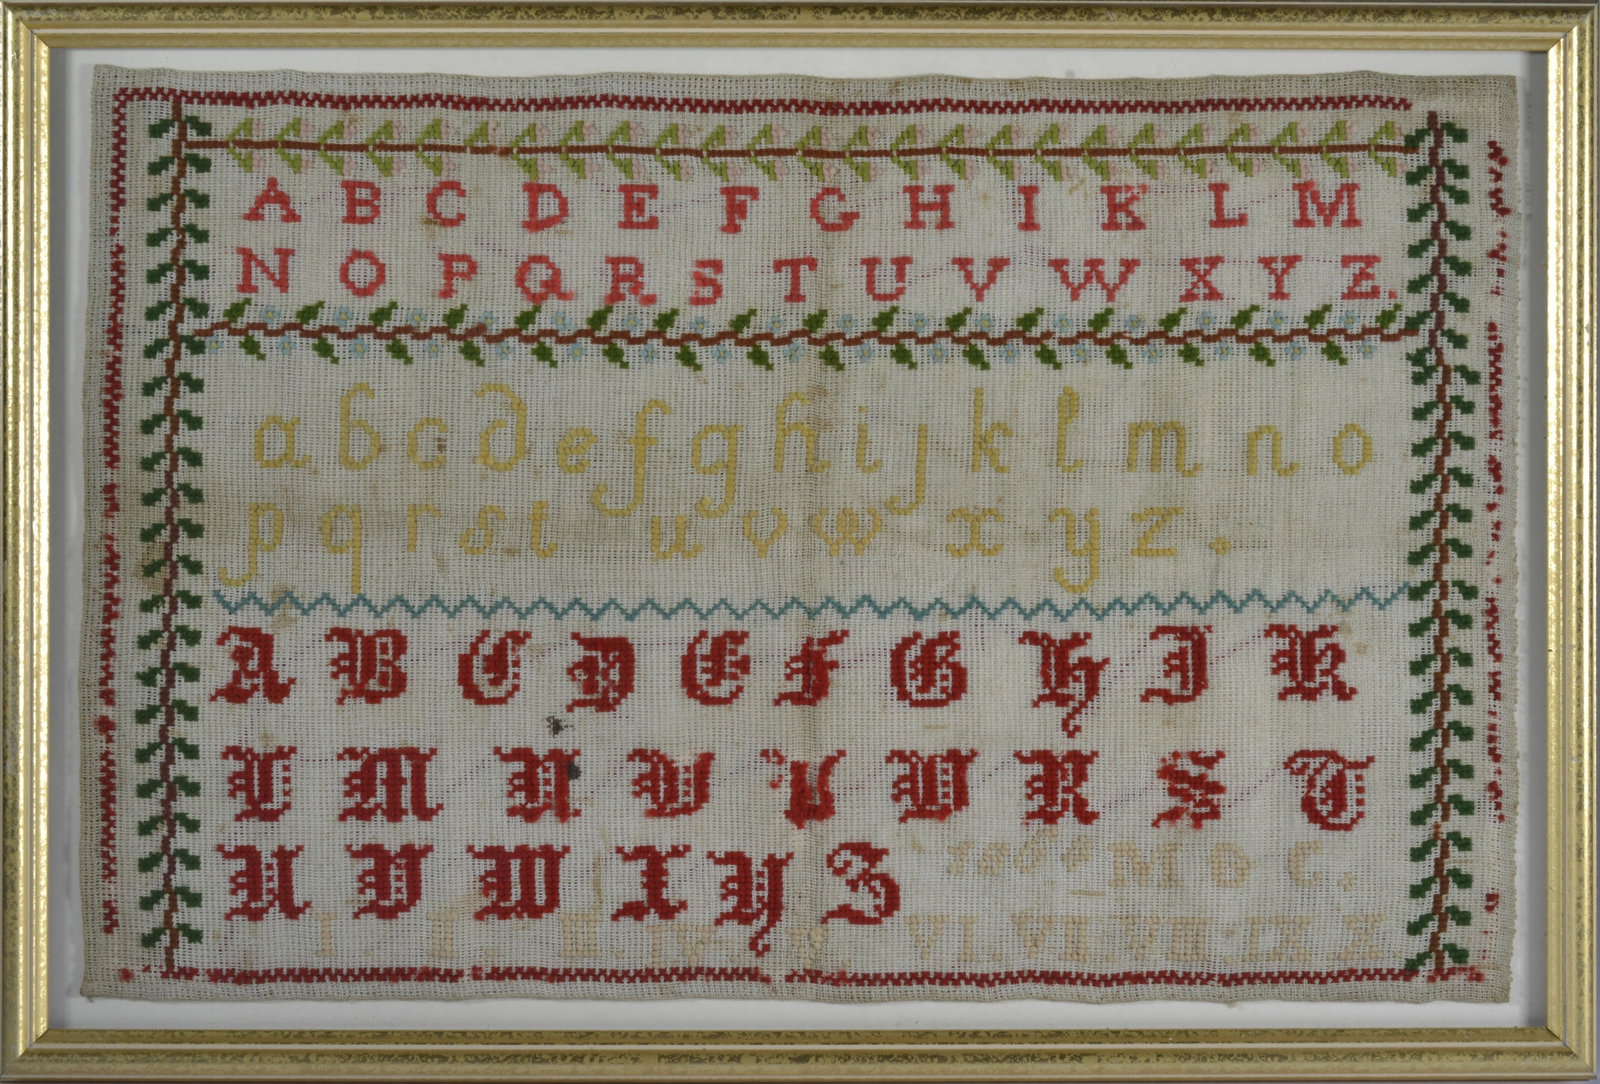 A B C D E F G H I K L M
N O P Q R S T U V W X Y Z.
a b c d e f g h i j k l m n o
p q r s t u v w x y z.
A B C D E F G H I K
L M N O P Q R S T
U V W X Y Z M D C.
I. II. III. IV. V. VI. VII. VIII. IX. X